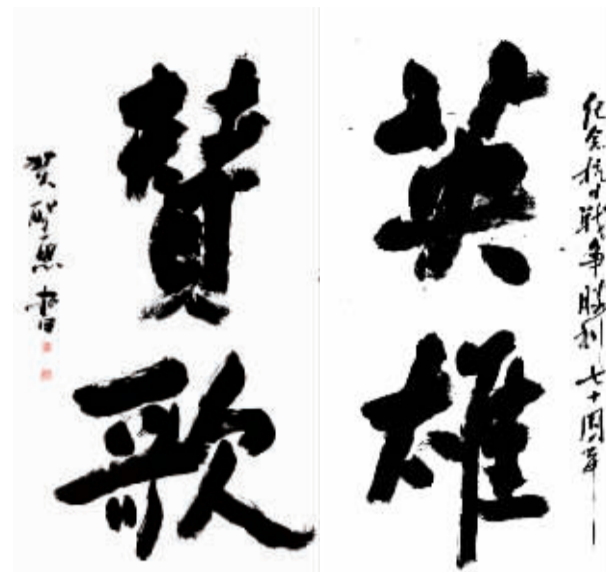 纪念抗日战争胜利七十周年
英雄
赞歌
贺圣思书